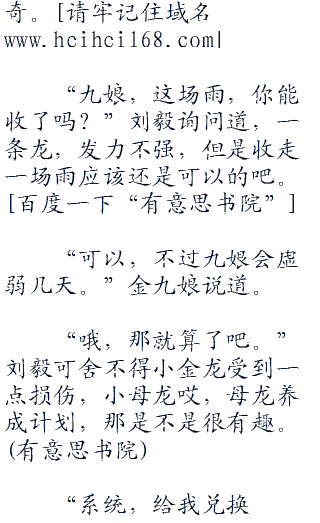 奇。[请牢记住域名
www.hcihci168.com|
“九娘，这场雨，你能
收了吗？”刘毅询问道，一
条龙，发力不强，但是收走
一场雨应该还是可以的吧。
[百度一下“有意思书院”]
“可以，不过九娘会虚
弱几天。”金九娘说道。
“哦，那就算了吧。”
刘毅可舍不得小金龙受到一
点损伤，小母龙哎，母龙养
成计划，那是不是很有趣。
(有意思书院)
“系统，给我兑换